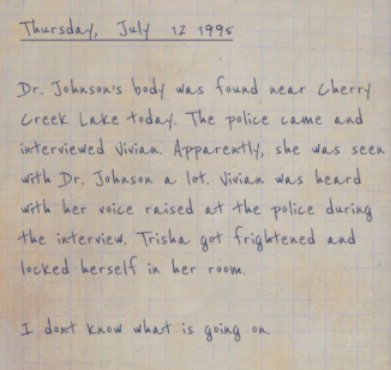 Thursday, July 12 1995
Dr. Johnson's body was found near Cherry
Creek Lake today. The police came and
interviewed Vivian. Apparently, she was seen
with Dr. Johnson a lot. Vivian was heard
with her voice raised at the police during
the interview. Trisha got frightened and
locked herself in her room.
I dont know what is going on.